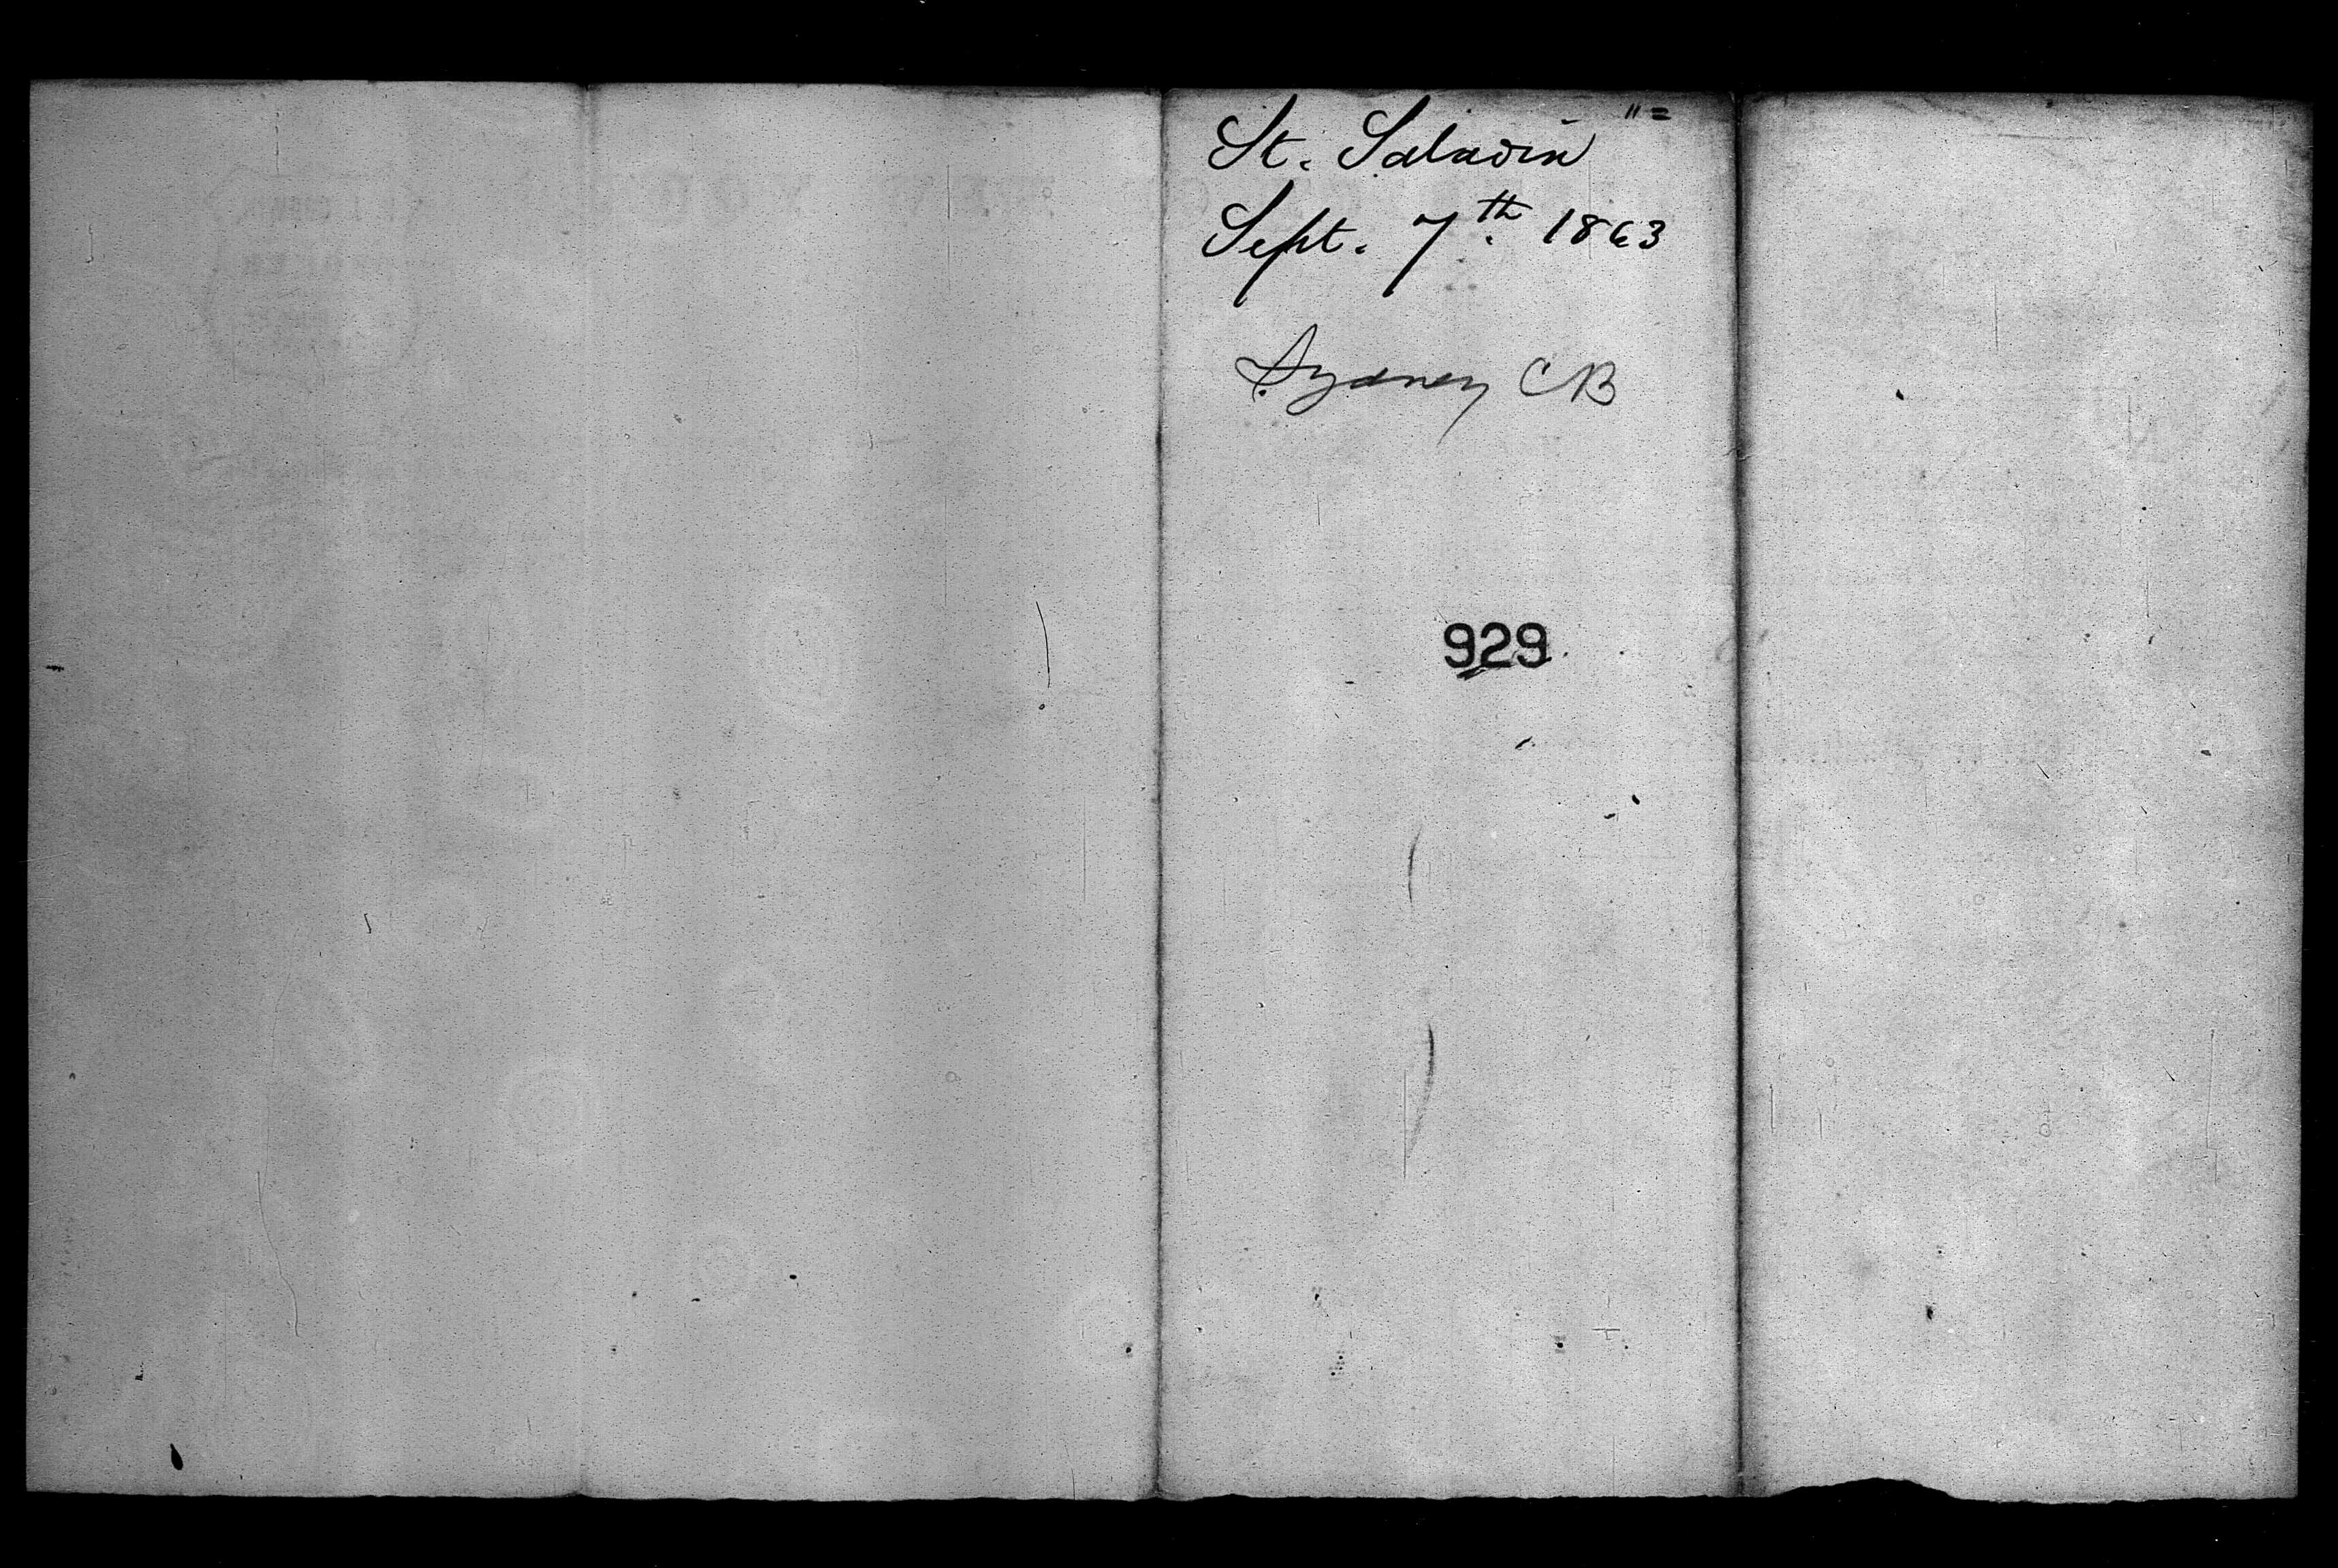 St. Saladin
Sept. 7th. 1863
Sydney CB
929